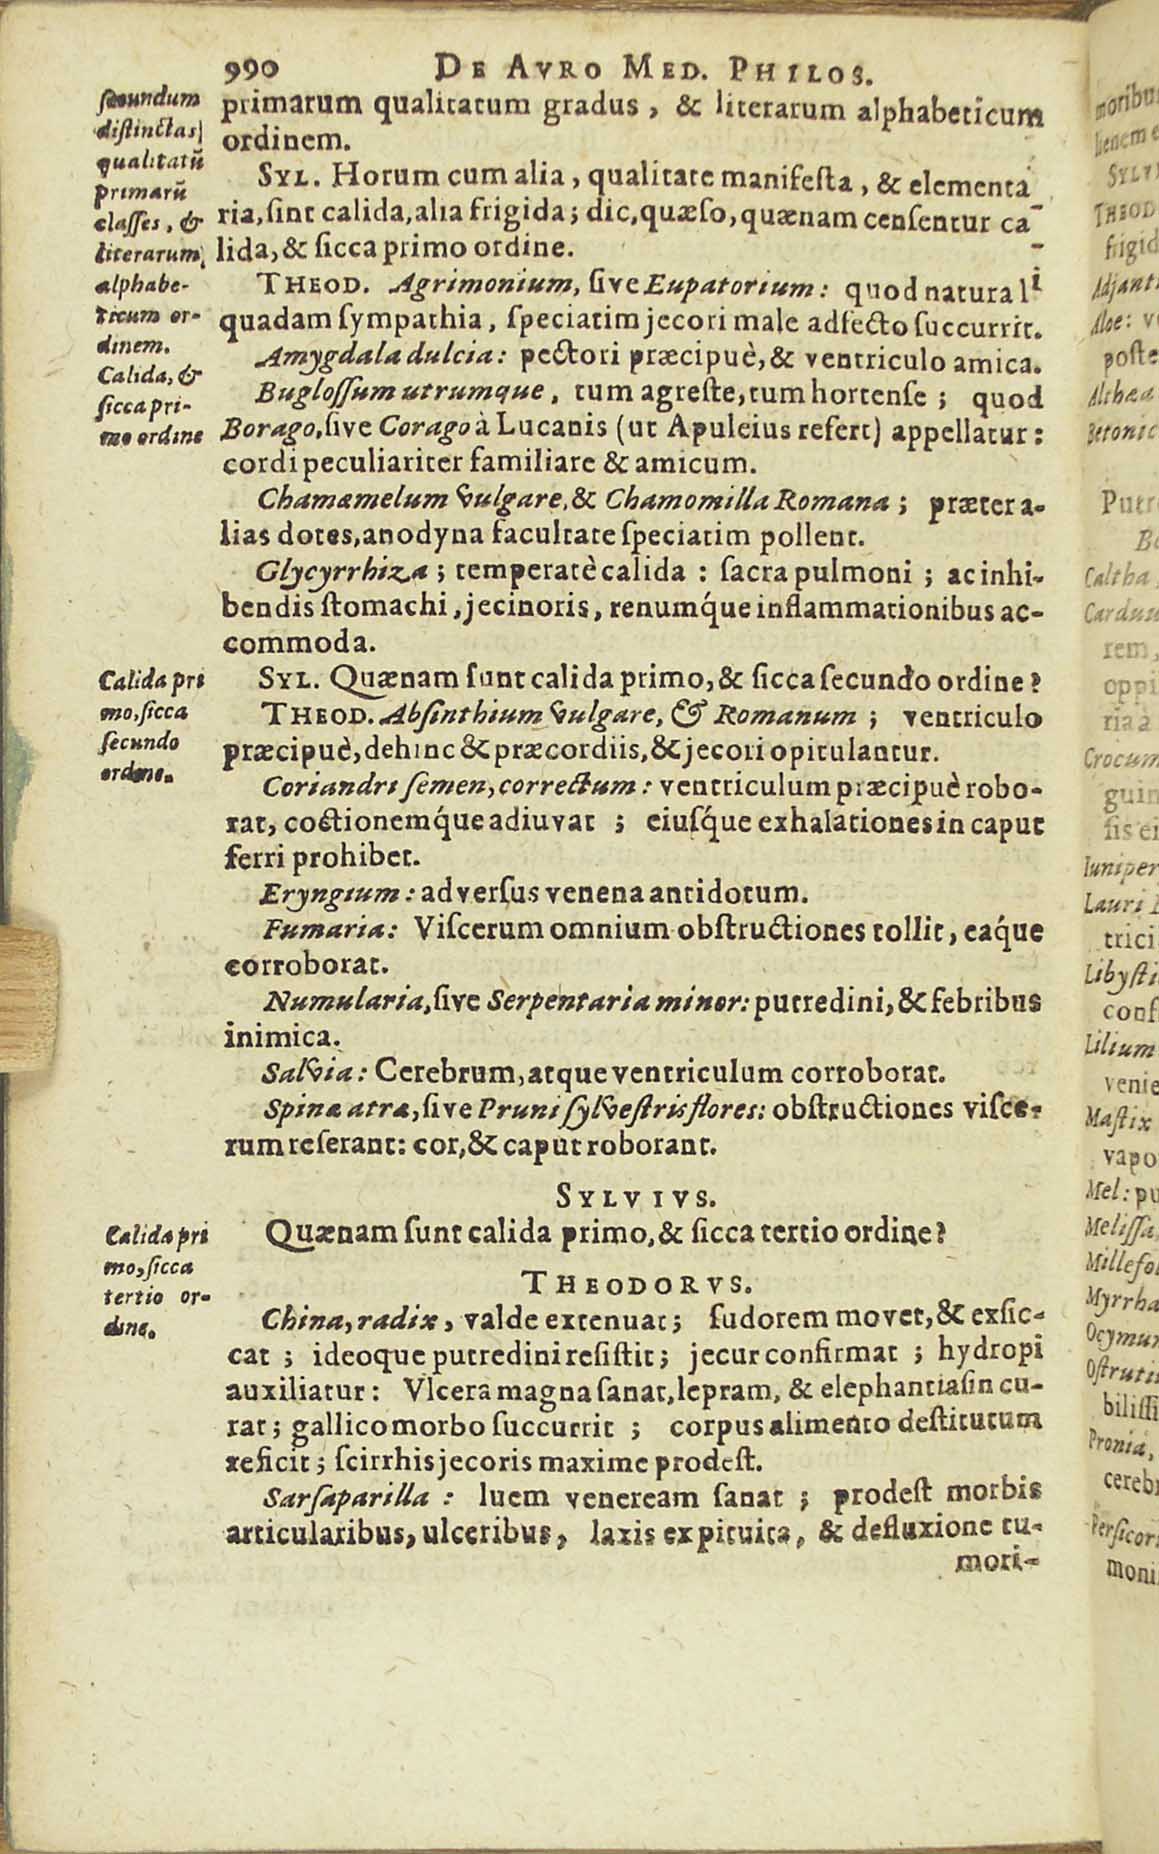 990 DE AVRO MED. PHILOS.
secundum
distinctas
qualitatū
primarū
classes, &
literarum
alphabe-
ticum or-
dinem.
Calida, &
sicca pri-
mo ordine
primarum qualitatum gradus, & literarum alphabeticum
ordinem.
SYL. Horum cum alia, qualitate manifesta, & elementa-
ria, sint calida, alia frigida; dic, quæso, quænam censentur ca-
lida, & sicca primo ordine.
THEOD. Agrimonium, sive Eupatorium: quod naturali
quadam sympathia, speciatim jecori male adfecto succurrit.
Amygdala dulcia: pectori præcipuè, & ventriculo amica.
Buglossum utrumque, tum agreste, tum hortense; quod
Borago, sive Corago à Lucanis (ut Apuleius refert) appellatur:
cordi peculiariter familiare & amicum.
Chamæmelum vulgare, & Chamomilla Romana; præter a-
lias dotes, anodyna facultate speciatim pollent.
Glycyrrhiza; temperatè calida: sacra pulmoni; ac inhi-
bendis stomachi, jecinoris, renumq́ue inflammationibus ac-
commoda.
Calida pri
mo, sicca
secundo
ordine.
SYL. Quænam sunt calida primo, & sicca secundo ordine?
THEOD. Absinthium vulgare, & Romanum; ventriculo
præcipuè, dehinc & præcordiis, & jecori opitulantur.
Coriandri semen, correctum: ventriculum præcipuè robo-
rat, coctionemq́ue adiuvat; eiusq́ue exhalationes in caput
ferri prohibet.
Eryngium: adversus venena antidotum.
Fumaria: Viscerum omnium obstructiones tollit, eaq́ue
corroborat.
Numularia, sive Serpentaria minor: putredini, & febribus
inimica.
Salvia: Cerebrum, atque ventriculum corroborat.
Spinæ atræ, sive Pruni sylvestris flores: obstructiones visce-
rum reserant: cor, & caput roborant.
SYLVIVS.
Calida pri
mo, sicca
tertio or-
dine.
Quænam sunt calida primo, & sicca tertio ordine?
THEODORVS.
China, radix, valde extenuat; sudorem movet, & exsic-
cat; ideoque putredini resistit; jecur confirmat; hydropi
auxiliatur: Vlcera magna sanat, lepram, & elephantiasin cu-
rat; gallico morbo succurrit; corpus alimento destitutum
reficit; scirrhis jecoris maxime prodest.
Sarsaparilla: luem veneream sanat; prodest morbis
articularibus, ulceribus, laxis ex pituita, & defluxione tu-
mori-
moribu
lienem e
SYLV
THEOD
frigid
Adjant
Aloe: v
poste
Althæa
Betonic
Putr
Be
Caltha
Carduu
rem,
oppi
ria à
Crocum
guin
sis ei
Iuniper
Lauri
trici
Libysti
conf
Lilium
venie
Mastix
vapo
Mel: pu
Melissa
Millefol
Myrrha
Ocymun
Ostruti
bilissi
Pronia,
cerebr
Persicor
moni